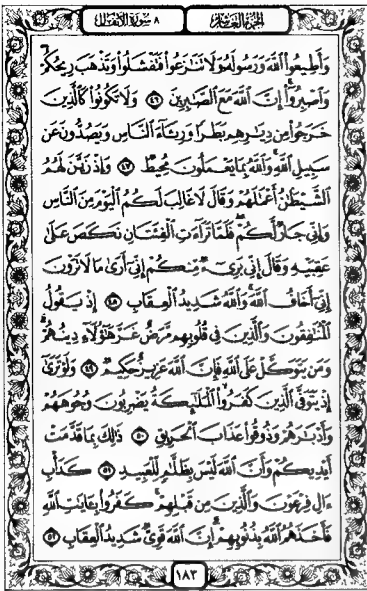 الجزء العاشر
٨ سورة الأنفال
وَأَطِيعُوا۟ ٱللَّهَ وَرَسُولَهُۥ وَلَا تَنَٰزَعُوا۟ فَتَفْشَلُوا۟ وَتَذْهَبَ رِيحُكُمْ
وَٱصْبِرُوٓا۟ إِنَّ ٱللَّهَ مَعَ ٱلصَّٰبِرِينَ ٤٦ وَلَا تَكُونُوا۟ كَٱلَّذِينَ
خَرَجُوا۟ مِن دِيَٰرِهِم بَطَرًا وَرِئَآءَ ٱلنَّاسِ وَيَصُدُّونَ عَن
سَبِيلِ ٱللَّهِ وَٱللَّهُ بِمَا يَعْمَلُونَ مُحِيطٌ ٤٧ وَإِذْ زَيَّنَ لَهُمُ
ٱلشَّيْطَٰنُ أَعْمَٰلَهُمْ وَقَالَ لَا غَالِبَ لَكُمُ ٱلْيَوْمَ مِنَ ٱلنَّاسِ
وَإِنِّى جَارٌ لَّكُمْ فَلَمَّا تَرَآءَتِ ٱلْفِئَتَانِ نَكَصَ عَلَىٰ
عَقِبَيْهِ وَقَالَ إِنِّى بَرِىٓءٌ مِّنكُمْ إِنِّىٓ أَرَىٰ مَا لَا تَرَوْنَ
إِنِّىٓ أَخَافُ ٱللَّهَ وَٱللَّهُ شَدِيدُ ٱلْعِقَابِ ٤٨ إِذْ يَقُولُ
ٱلْمُنَٰفِقُونَ وَٱلَّذِينَ فِى قُلُوبِهِم مَّرَضٌ غَرَّ هَٰٓؤُلَآءِ دِينُهُمْ
وَمَن يَتَوَكَّلْ عَلَى ٱللَّهِ فَإِنَّ ٱللَّهَ عَزِيزٌ حَكِيمٌ ٤٩ وَلَوْ تَرَىٰٓ
إِذْ يَتَوَفَّى ٱلَّذِينَ كَفَرُوا۟ ٱلْمَلَٰٓئِكَةُ يَضْرِبُونَ وُجُوهَهُمْ
وَأَدْبَٰرَهُمْ وَذُوقُوا۟ عَذَابَ ٱلْحَرِيقِ ٥٠ ذَٰلِكَ بِمَا قَدَّمَتْ
أَيْدِيكُمْ وَأَنَّ ٱللَّهَ لَيْسَ بِظَلَّٰمٍ لِّلْعَبِيدِ ٥١ كَدَأْبِ
ءَالِ فِرْعَوْنَ وَٱلَّذِينَ مِن قَبْلِهِمْ كَفَرُوا۟ بِـَٔايَٰتِ ٱللَّهِ
فَأَخَذَهُمُ ٱللَّهُ بِذُنُوبِهِمْ إِنَّ ٱللَّهَ قَوِىٌّ شَدِيدُ ٱلْعِقَابِ ٥٢
١٨٣